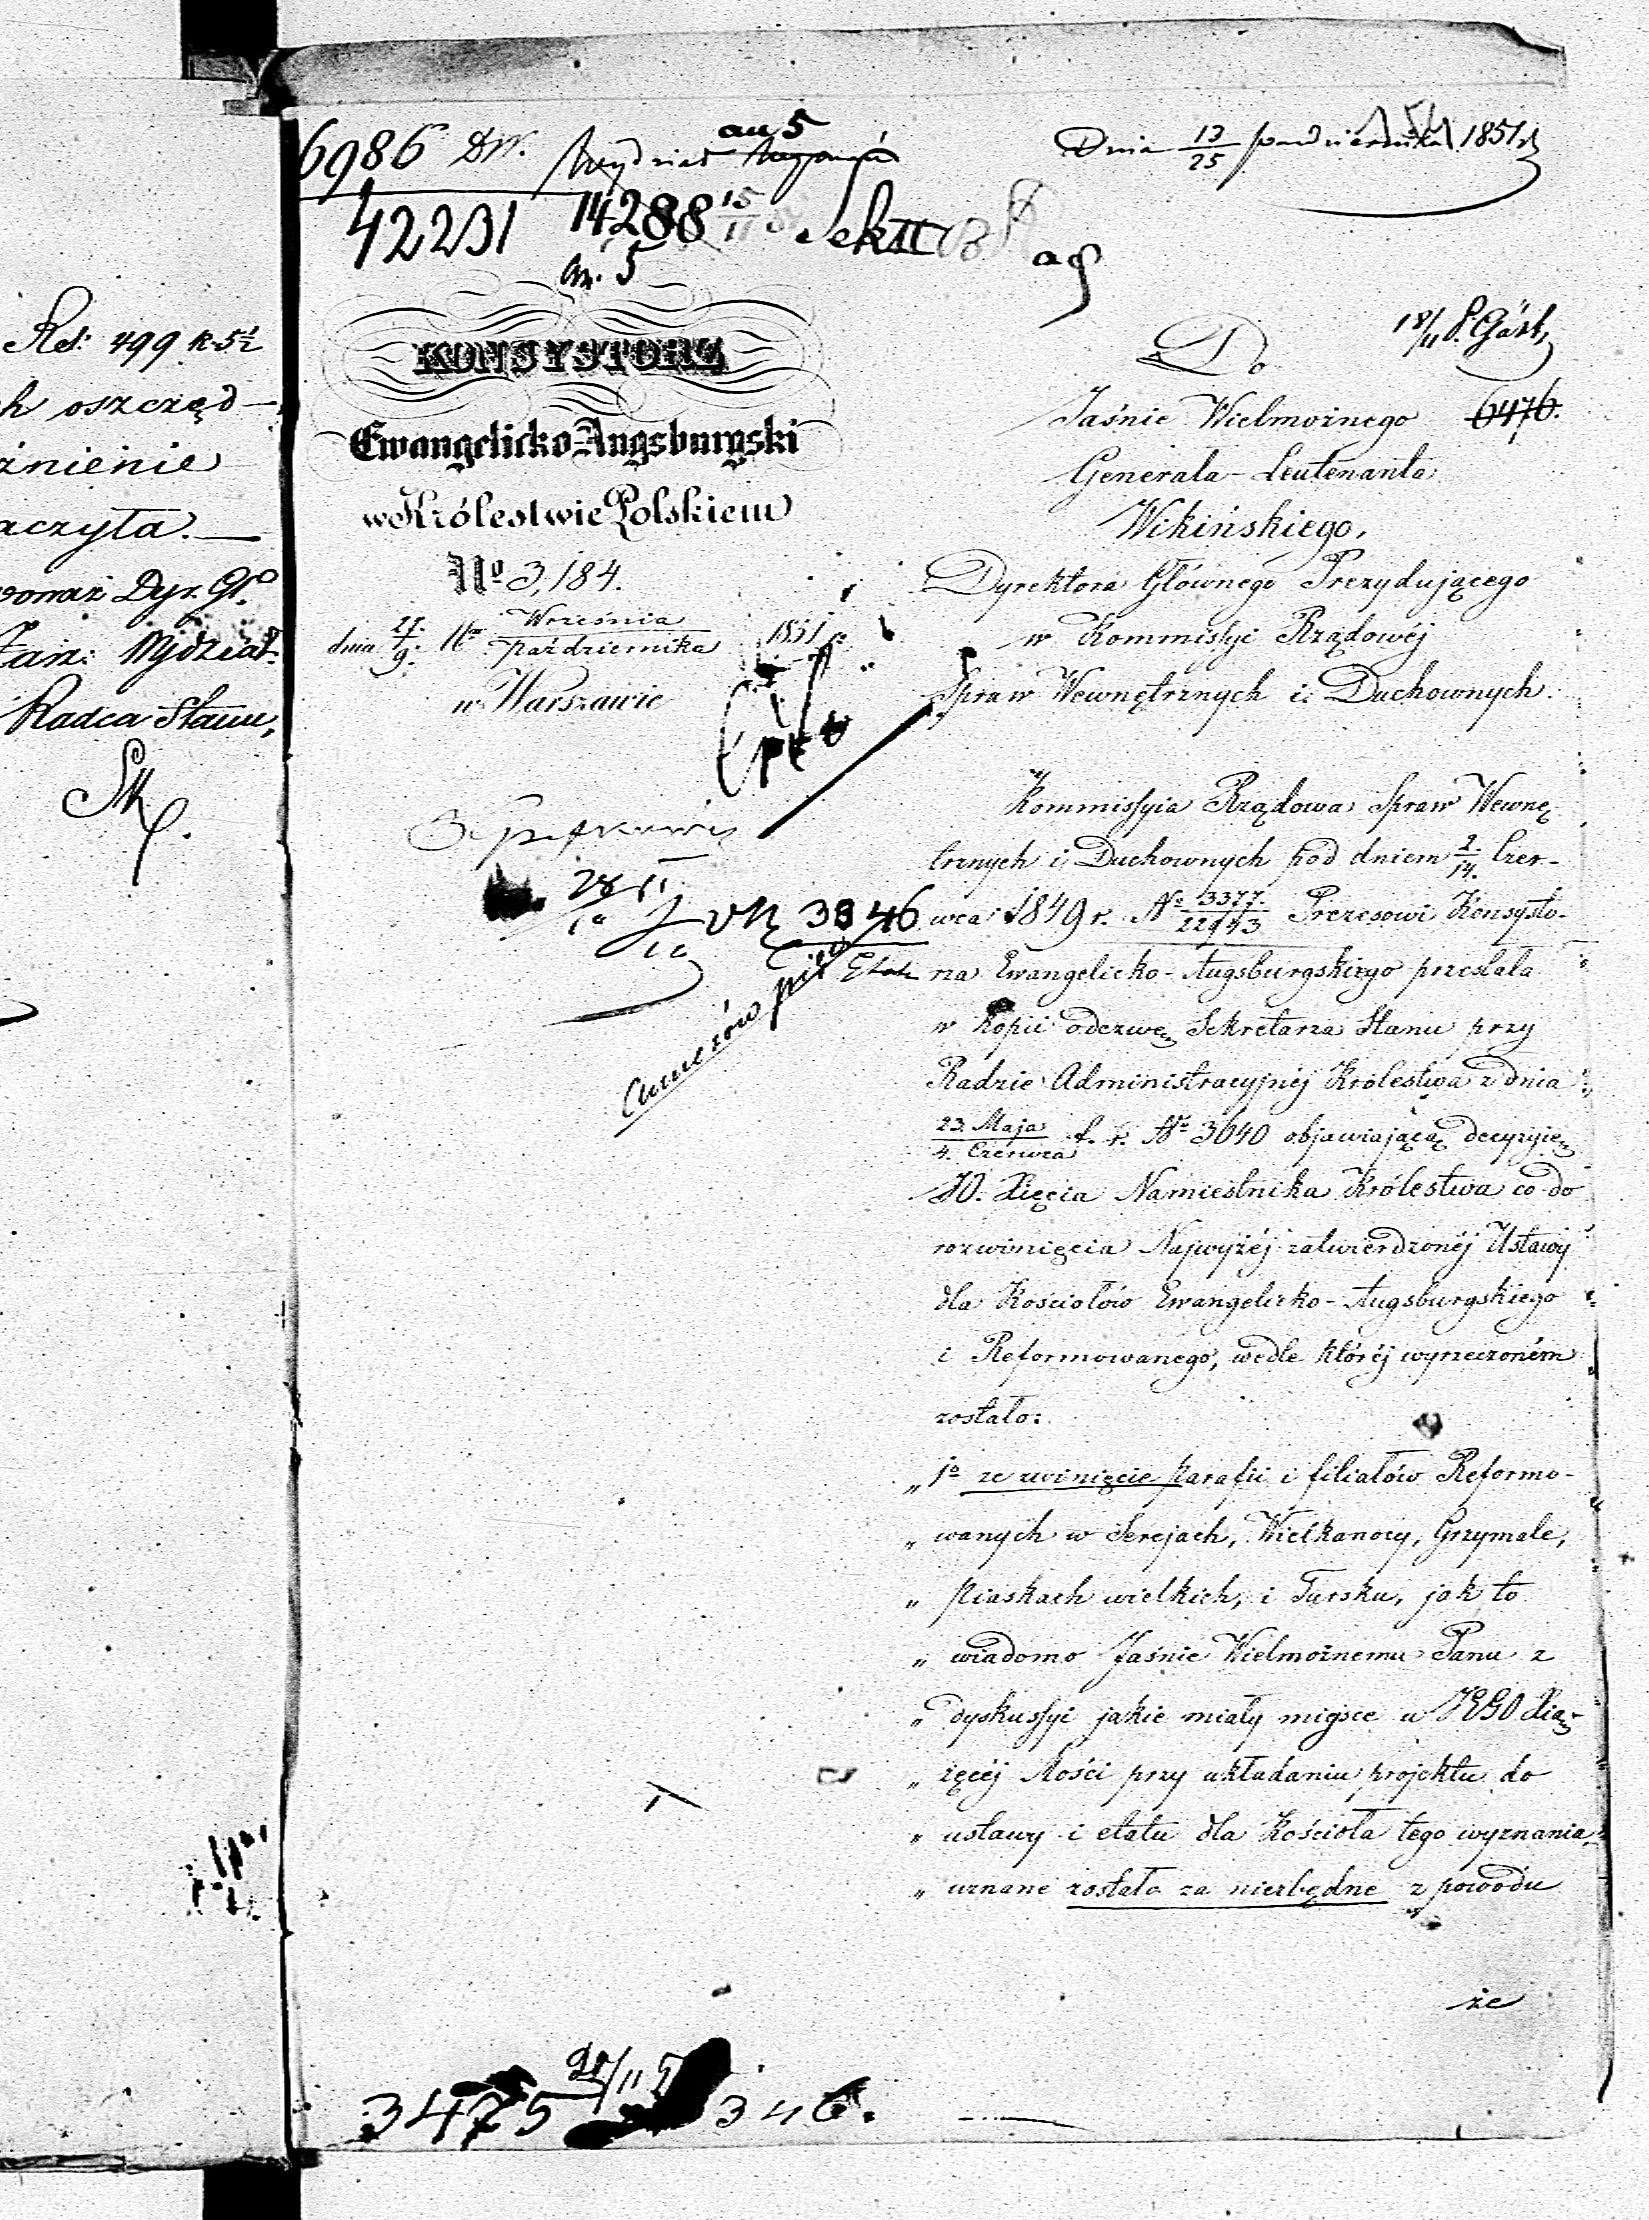 Rel: 499 k 5½
oszczęd-
Dyr. Gł.
Wydział
Radca Stanu,
6986 DW.
42231
14288 15/11
an 5
Wydział
Dnia 13/25 października 1851 r.
Sek II
ag
18/11 P. Górst,
6476.
KONSYSTORZ
Ewangelicko-Augsburgski
w Królestwie Polskiem
Nº 3,184.
dnia 27./9. Września/Października 1851 r.
w Warszawie
Do
Jaśnie Wielmożnego
Generała-Leutenanta
Wikińskiego,
Dyrektora Głównego Prezydującego
w Kommissyi Rządowéj
Spraw Wewnętrznych i Duchownych.
28
3346
Etat
Kommissyia Rządowa Spraw Wewnę-
trznych i Duchownych pod dniem 2/14. Czer-
wca 1849 r. Nº 3377./22943 Prezesowi Konsysto-
rza Ewangelicko-Augsburgskiego przesłała
w kopii odezwę Sekretarza Stanu przy
Radzie Administracyjnéj Królestwa z dnia
23. Maja/4. Czerwca t. r. Nº 3640 objawiającą decyzyię
JO. Xięcia Namiestnika Królestwa co do
rozwinięcia Najwyżéj zatwierdzonéj Ustawy
dla Kościołów Ewangelicko-Augsburgskiego
i Reformowanego, wedle któréj wyrzeczoném
zostało:
„1º ze zwinięcie parafii i filiałów Reformo-
„ wanych w Serejach, Wielkanocy, Grzymale,
„ Piaskach wielkich, i Tursku, jak to
„ wiadomo Jaśnie Wielmożnemu Panu z
„ dyskussyi jakie miały miejsce u JEGO Xią-
„ żęcéj Mości przy układaniu projektu do
„ ustawy i etatu dla Kościoła tego wyznania,
„ uznane zostało za niezbędne z powodu
że
3475
346.